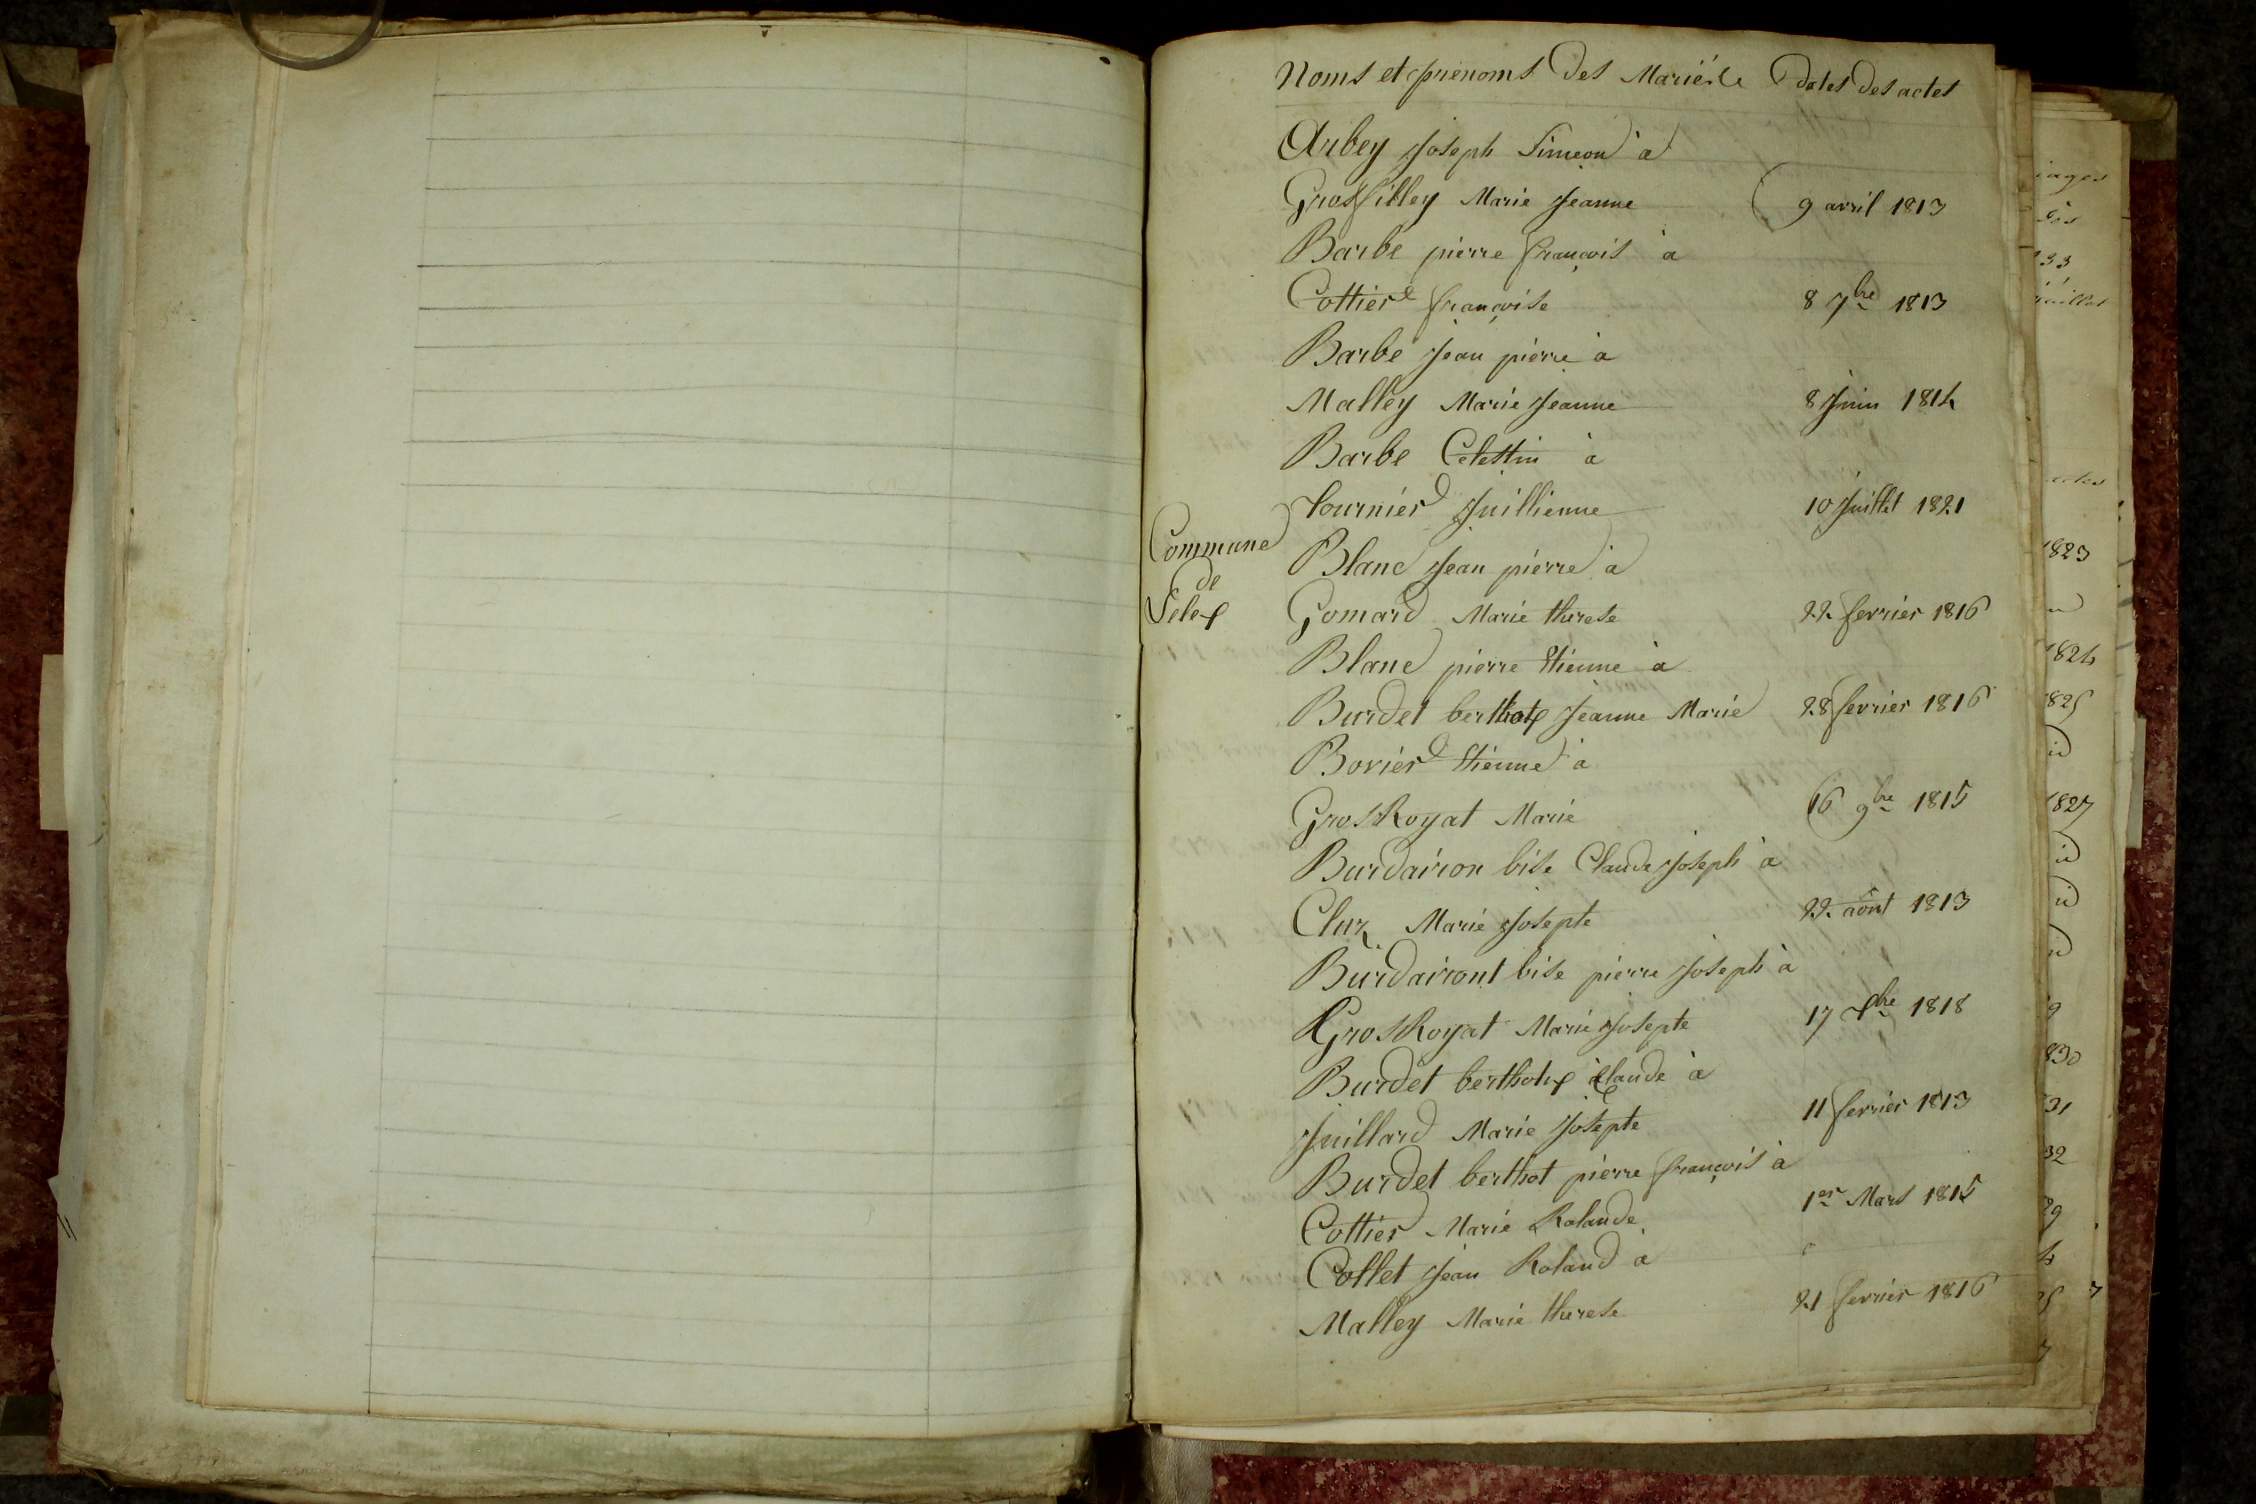 Noms et prenoms des Mariés dates des actes
Arbey Joseph Simeon à
Grosfilley Marie Jeanne 9 avril 1813
Barbe pierre françois à
Cottier françoise 8 7bre 1813
Barbe Jean pierre à
Malley Marie Jeanne 8 Juin 1814
Barbe Celestin à
fournier Juillienne 10 Juillet 1821
Commune
de
Lelex
Blanc Jean pierre à
Gomard Marie therese 22 fevrier 1816
Blanc pierre Etienne à
Burdet berthotx Jeanne Marie 28 fevrier 1816
Bovier Etienne à
GrosRoyat Marie 16 9bre 1815
Burdairon bise Claude Joseph à
Cluz Marie Josepte 22 août 1813
Burdairont bise pierre Joseph à
GrosRoyat Marie Josepte 17 Xbre 1818
Burdet berthotx Claude à
Juillard Marie Josepte 11 fevrier 1813
Burdet berthot pierre françois à
Cottier Marie Rolande 1er Mars 1815
Collet Jean Roland à
Malley Marie therese 21 fevrier 1816
iages
33
juillet
actes
1823
1824
1825
id
1827
id
id
9
830
31
32
29